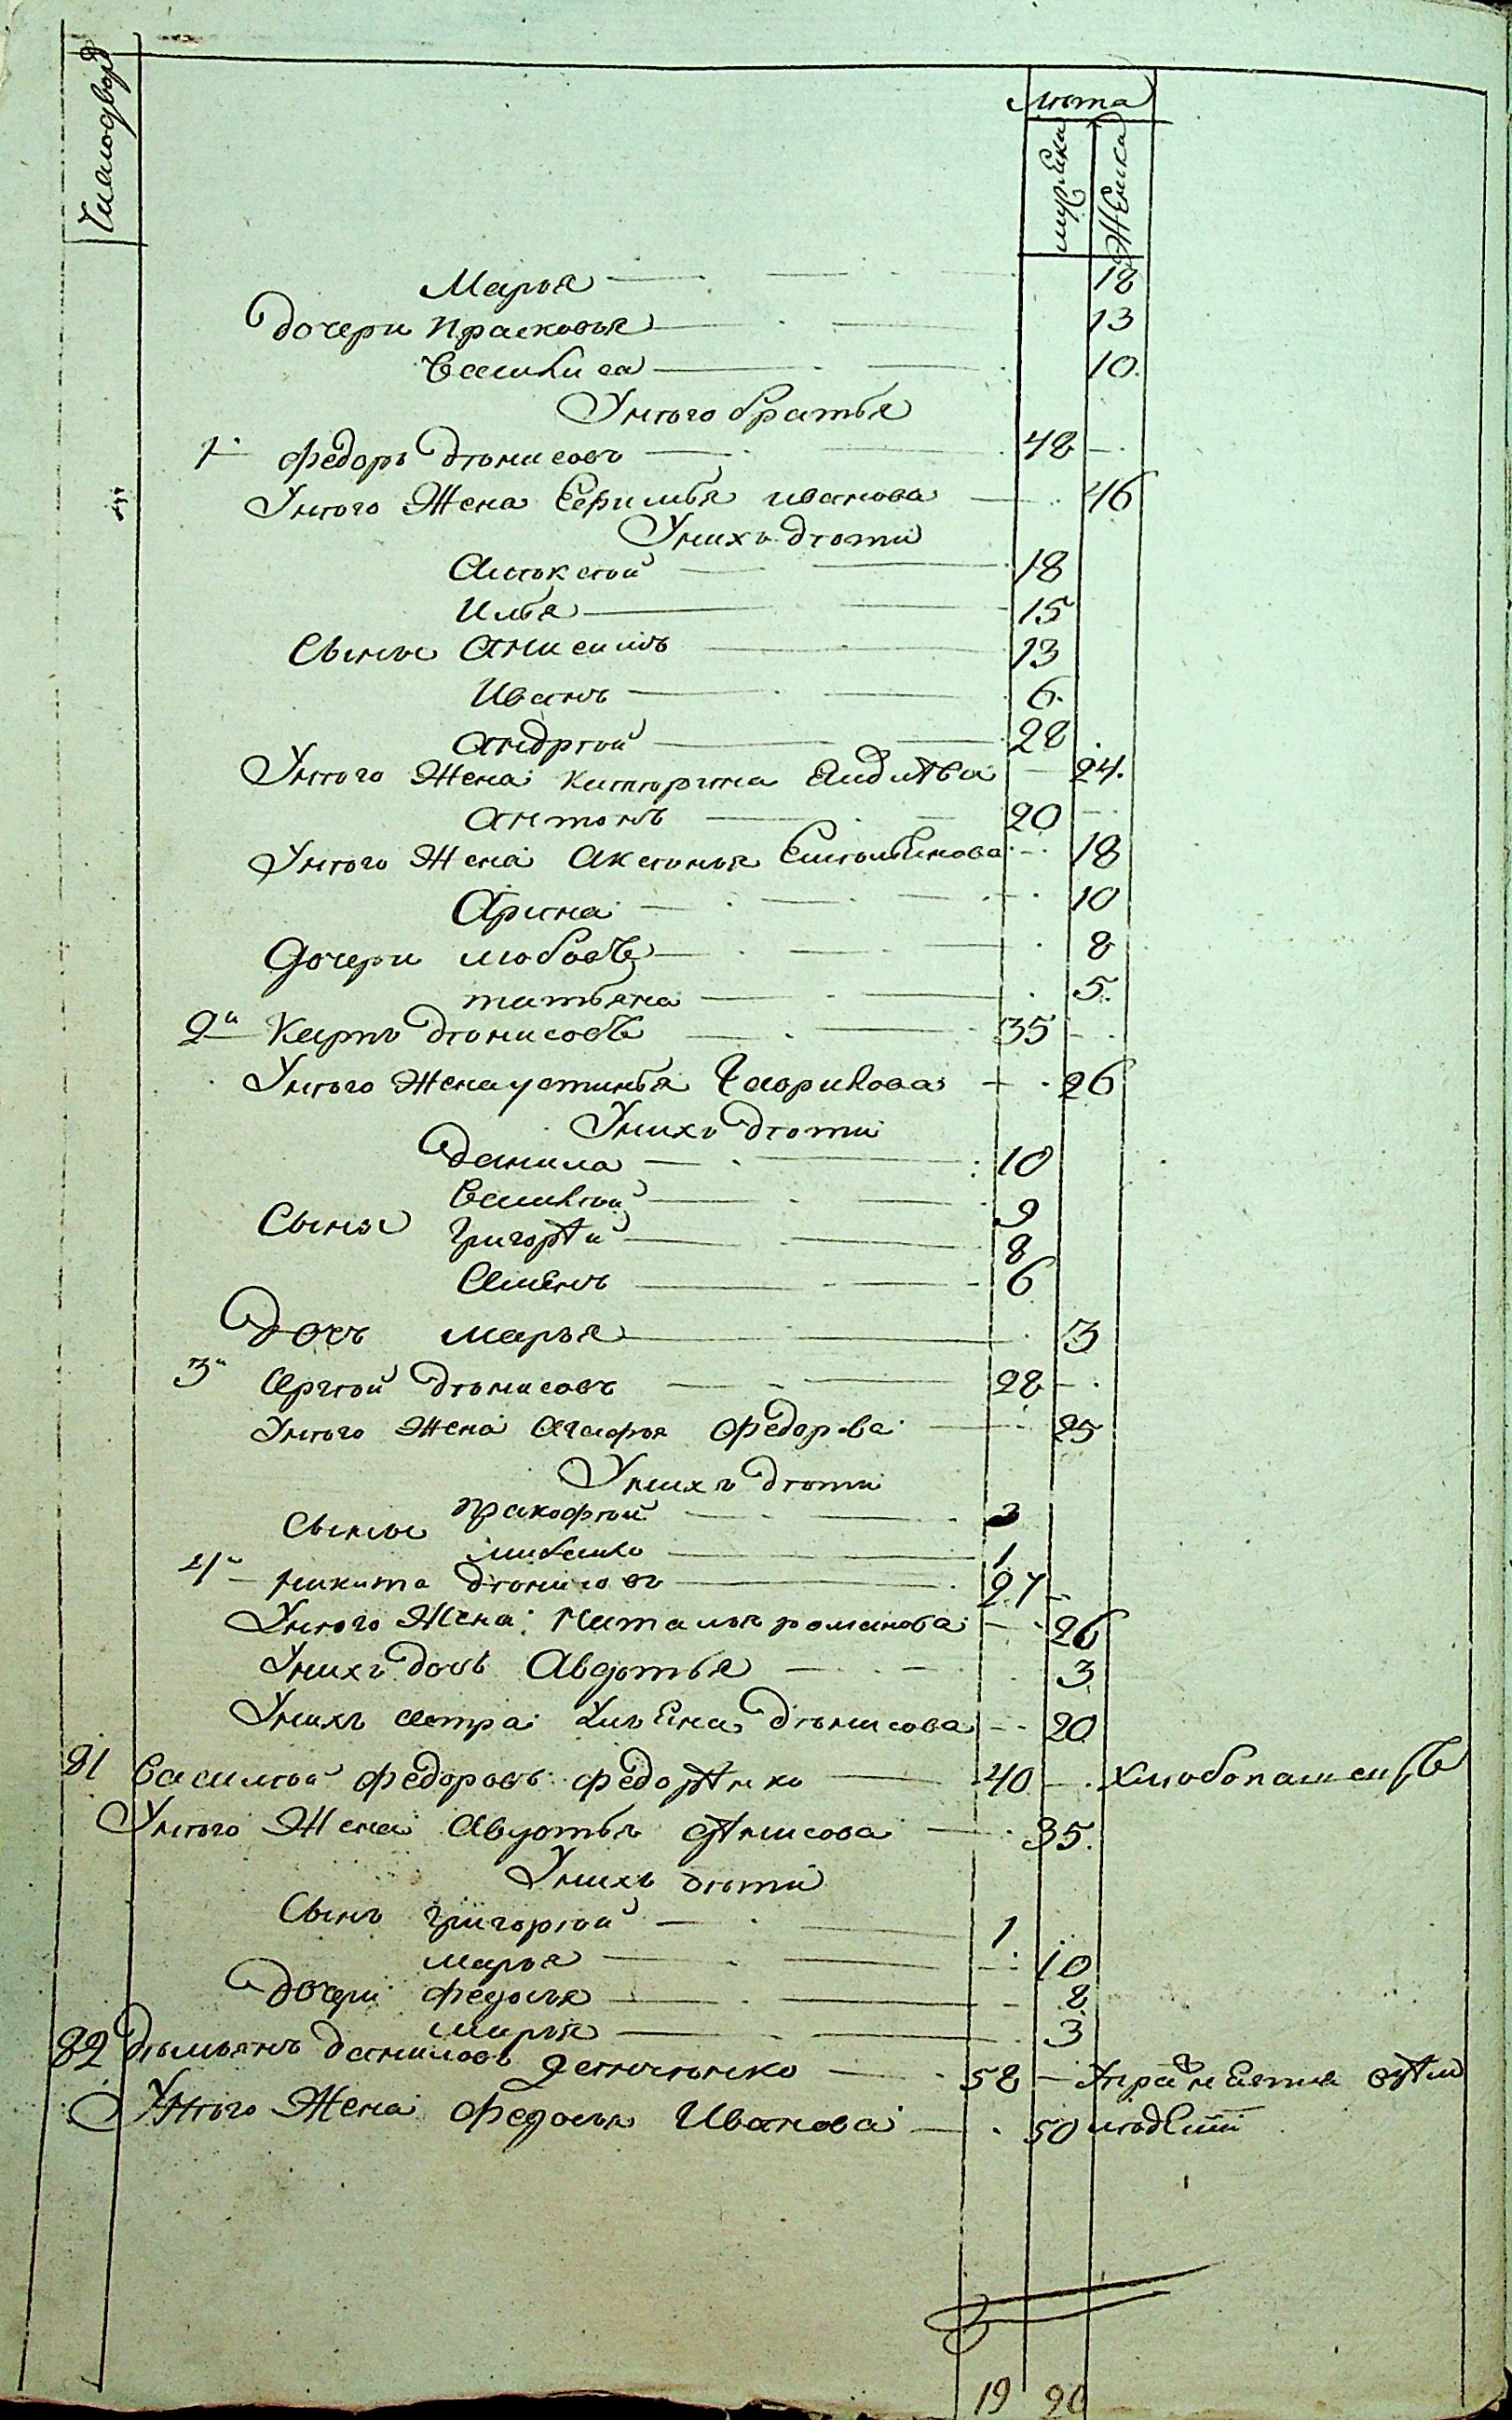 Число дворъ
лѣта
мужска
женска
Марья 18
дочери Прасковья 13
Василиса 10
У него братья
1й Федоръ дѣнисовъ 48
У него жена Ефимья иванова 46
У нихъ дѣти
Алѣксѣй 18
Илья 15
Сыны Анисимъ 13
Иванъ 6
Андрѣй 28
У него жена катерина 24
Антонъ 20
У него жена Аксинья 18
Арина 10
дочери любовь 8
татьяна 5
2й Карпъ дѣнисовъ 35
У него жена устинья Гаврилова 26
У нихъ дѣти
данила 10
Василѣй 9
Сыны Григорѣй 8
Семенъ 6
дочь марья 3
3й Сергѣй дѣнисовъ 28
У него жена Агафья федорова 25
У нихъ дѣти
Сыны пракофѣй 3
михаило 1
4й никита дѣнисовъ 27
У него жена Наталья романова 26
У нихъ дочь Авдотья 3
У нихъ сестра Ульена дѣнисова 20
81 Василѣй федоровъ федорѣнко 40 хлѣбопашецъ
У него жена Авдотья дѣнисова 35
У нихъ дѣти
Сынъ григорѣй 1
марья 10
дочери федосья 8
марья 3
82 дѣмьянъ даниловъ 58
У него жена федосья Иванова 50
19 20